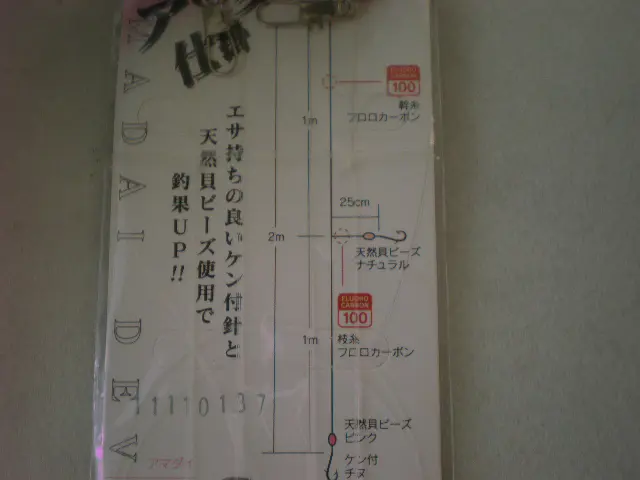 仕掛
MADAI DEV
エサ持ちの良いケン付針と
天然貝ビーズ使用で
釣果UP!!
1m
2m
1m
25cm
FLUORO
CARBON
100
幹糸
フロロカーボン
天然貝ビーズ
ナチュラル
FLUORO
CARBON
100
枝糸
フロロカーボン
天然貝ビーズ
ピンク
ケン付
チヌ
1110137
アマダイ